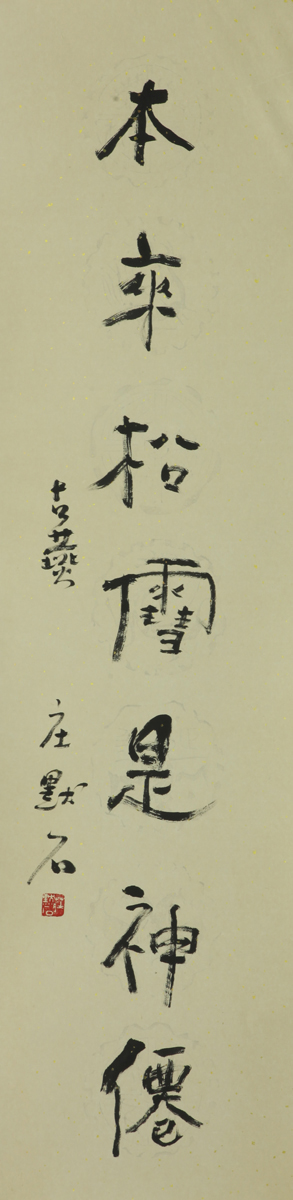 本來松雪是神僊
古燕
庄默石